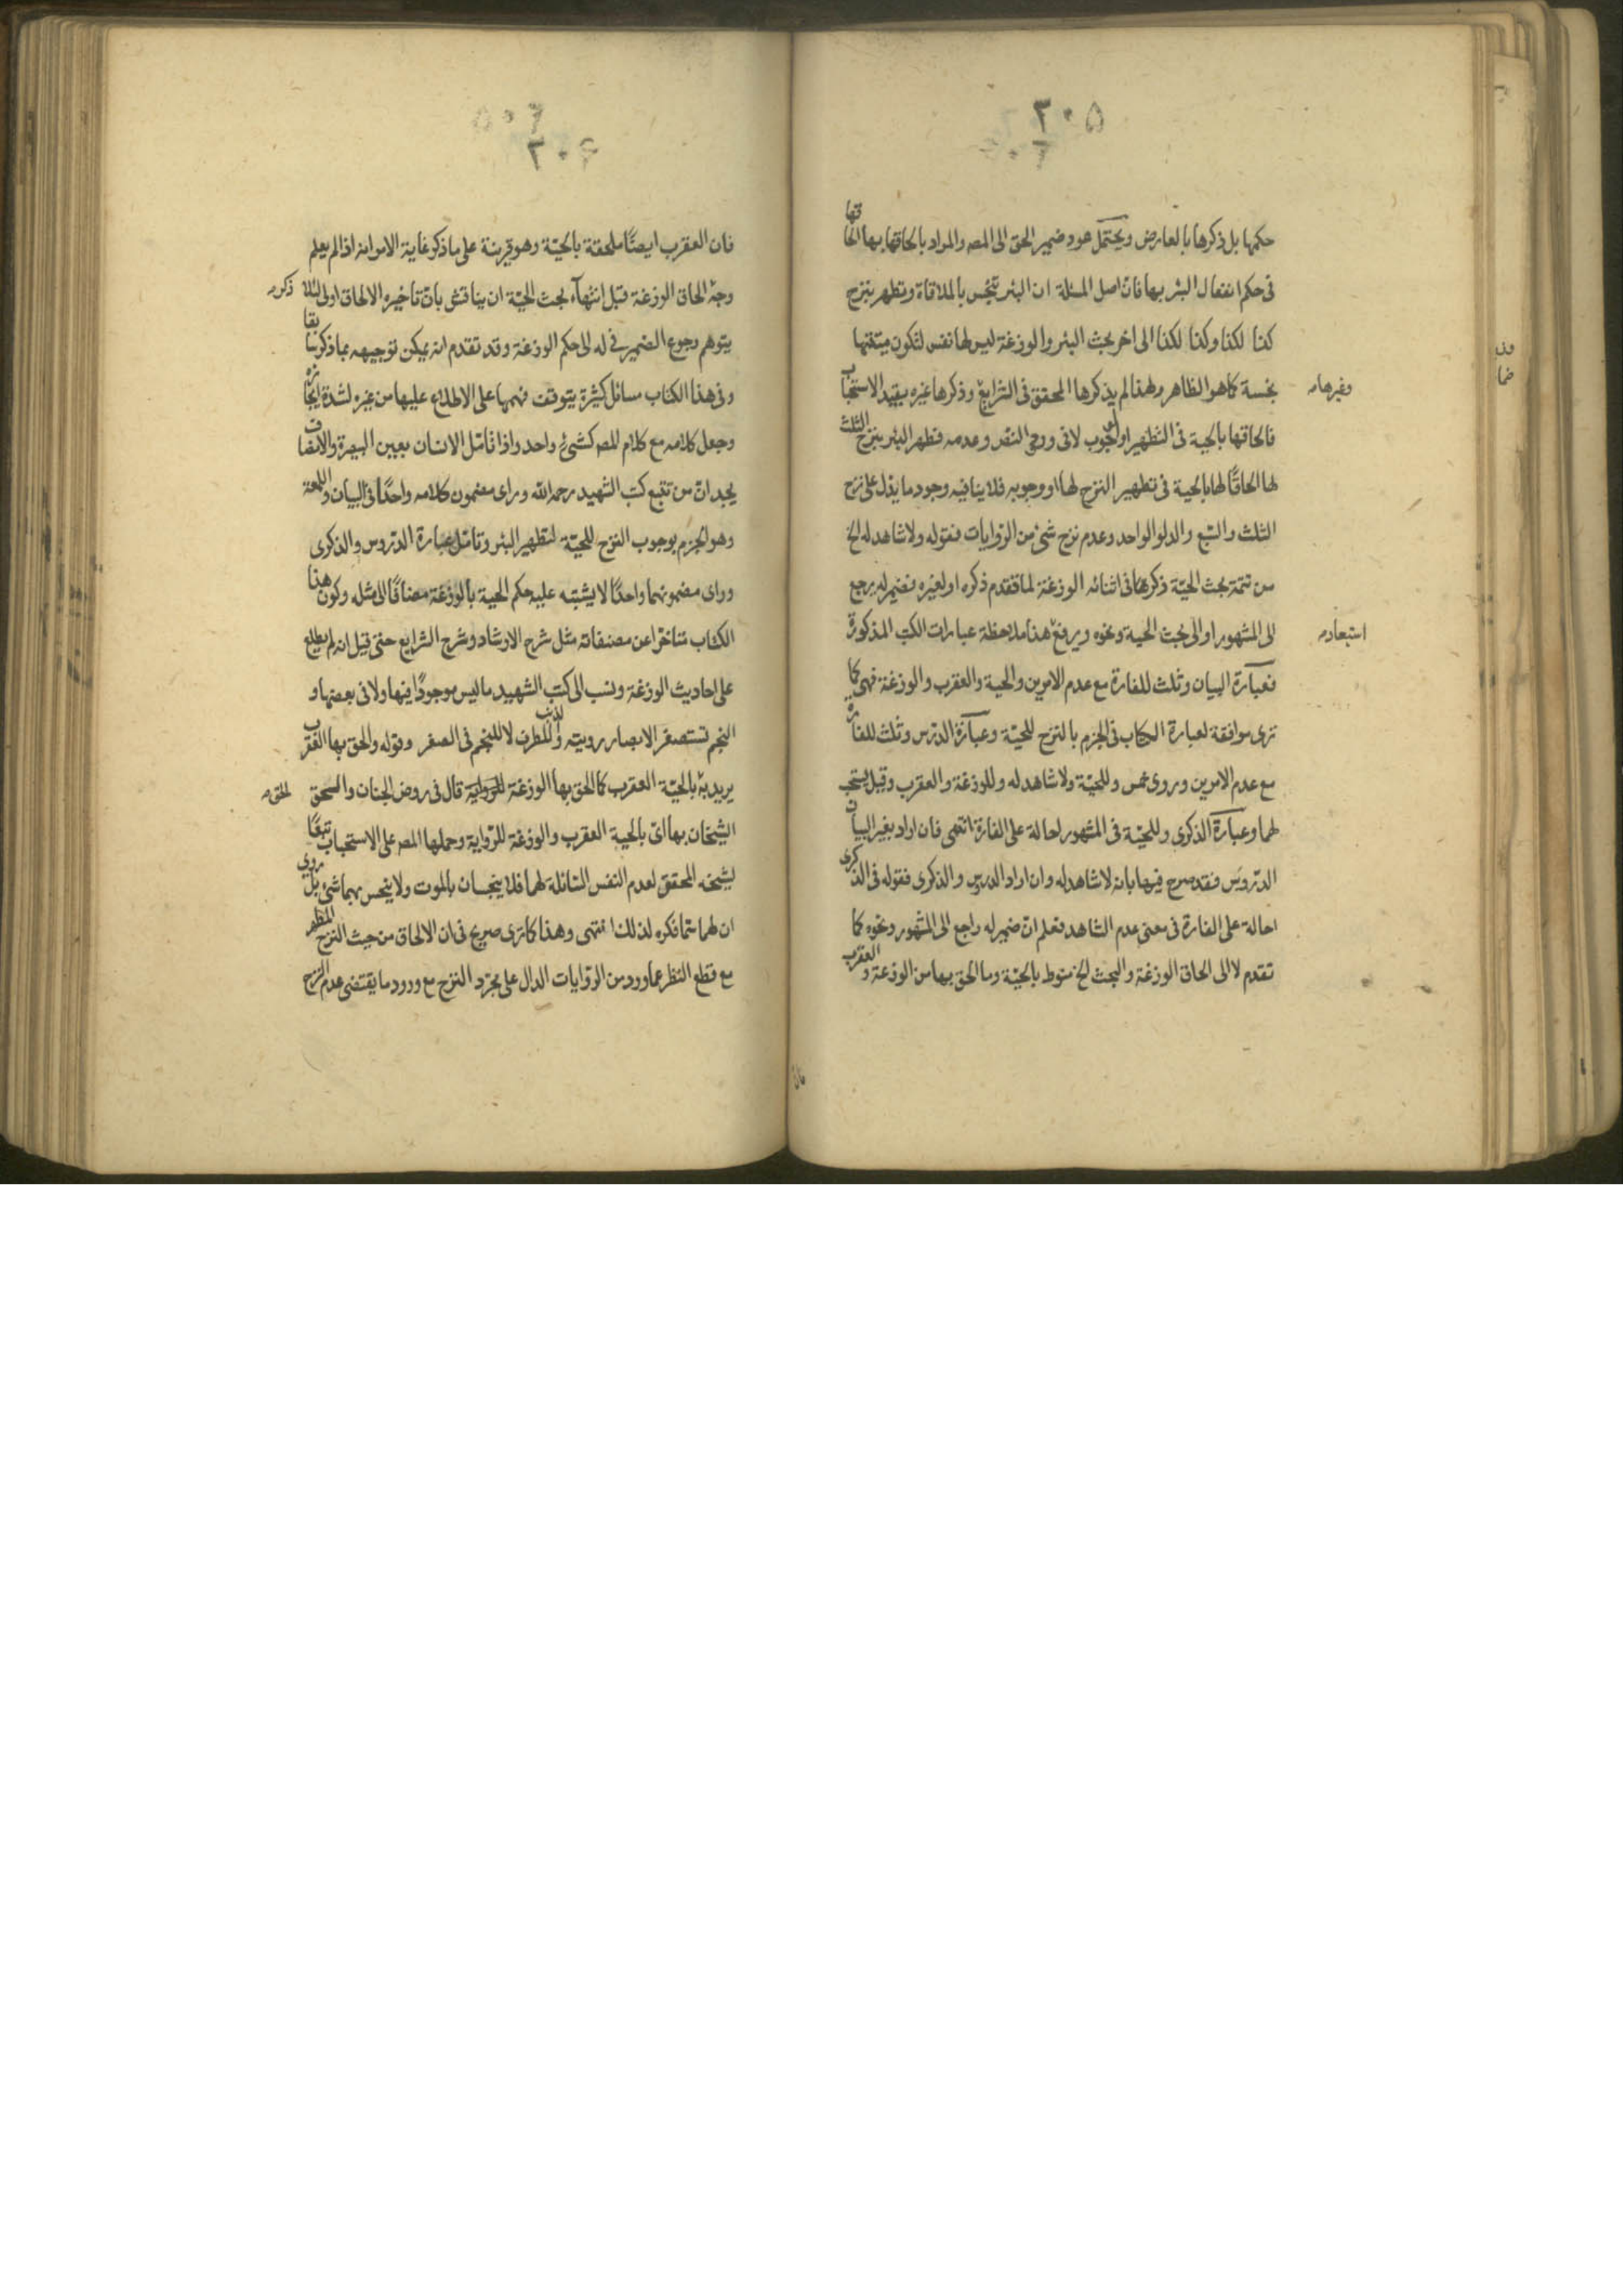 ٣٠٥
حكمها بل ذكرها بالعارض ويحتمل عود ضمير الحق الى المصـ والمراد بالحاقها بها الحاقها
فى حكم انفعال البئر بها فانّ اصل المسئلة ان البئر تنجس بالملاقاة وتطهر بنزح
كذا لكذا وكذا لكذا الى اخر بحث البئر والوزغة ليس لها نفس لتكون ميتتها
نجسة كما هو الظاهر ولهذا لم يذكرها المحقق فى الشرايع وذكرها غيره بقيد الاستحباب
وغيرها مـ
فالحاقها بالحية فى التطهير او الوجوب لا فى ورود النص وعدمه فطهر البئر بنزح الثلث
لها الحاقًا لها بالحية فى تطهير النزح لها او وجوبه فلا ينافيه وجود ما يدل على نزح
الثلث والسّبع والدلو الواحد وعدم نزح شئ من الرّوايات فقوله ولا شاهد له الخ
من تتمة بحث الحيّة ذكرها فى اثنائه الوزغة لما فقدم ذكره او لغيره فضمير له يرجع
الى المشهور او الى بحث الحية ونحوه ويرفع هذا ملاحظة عبارات الكتب المذكورة
استبعاد مـ
فعبارة البيان وثلث للفارة مع عدم الامرين والحية والعقرب والوزغة فهى كما
ترى موافقة لعبارة الكتاب فى الجزم بالنزح للحيّة وعبارة الدّرس وثلث للفارة
مع عدم الامرين وروى خمس وللحيّة ولا شاهد له وللوزغة والعقرب وقيل يستحب
لهما وعبارة الذكرى وللحيّة فى المشهور احالة على الفارة انتهى فان اراد بغير البيان
الدّروس فقد صرح فيها بانه لا شاهد له وان اراد الدروس والذكرى فقوله فى الذكرى
احالة على الفارة فى معنى عدم الشاهد فعلم انّ ضمير له راجع الى المشهور ونحوه كما
تقدم لا الى الحاق الوزغة والبحث الخ منوط بالحيّة وما الحق بها من الوزغة والعقرب
فان
٣٠٦
فان العقرب ايضًا ملحقة بالحيّة وهو قرينة على ما ذكر غاية الامر انه اذا لم يعلم
وجه الحاق الوزغة قبل انتهآء بحث الحيّة ان يناقش بانّ تاخيره الالحاق اولى لئلا
ذكره مـ
يتوهم رجوع الضمير فى له الى حكم الوزغة وقد تقدم انه يمكن توجيهه بما ذكر سابقا
وفى هذا الكتاب مسائل كثيرة يتوقف فهمها على الاطلاع عليها من غيره لشدة ايجازه
وجعل كلامه مع كلام المصـ كشئ واحد واذا تامّل الانسان بعين البصيرة والانصاف
يجد انّ من تتبع كتب الشهيد رحمه الله وراى مضمون كلامه واحدًا فى البيان واللمعة
وهو الجزم بوجوب النزح للحيّة لتطهير البئر وتامّل عبارة الدّروس والذكرى
وراى مضمونهما واحدًا لا يشتبه عليه حكم الحية بالوزغة مضافًا الى مثله وكون هذا
الكتاب متاخّرا عن مصنفاته مثل شرح الارشاد وشرح الشرايع حتى قيل انه لم يطلع
على احاديث الوزغة ونسب الى كتب الشهيد ما ليس موجودًا فيها ولا فى بعضها و
النجم تستصغر الابصار رويته والذنب للطرف لا للنجم فى الصغر وقوله والحق بها العقرب
يريد به بالحيّة العقرب كما الحق بها الوزغة للرواية قال فى روض الجنان والحق
الحق مـ
الشيخان بها اىّ بالحية العقرب والوزغة للرّواية وحملها المصـ على الاستحباب تبعًا
لشيخه المحقق لعدم النفس السّائلة لهما فلا ينجسان بالموت ولا ينجس بهما شئ بل روى
ان لهما سمّا فكره لذلك انتهى وهذا كما ترى صريح فى ان الالحاق من حيث النزح المطهر
مع قطع النظر عما ورد من الرّوايات الدال على مجرّد النزح مع ورود ما يقتضى عدم النزح